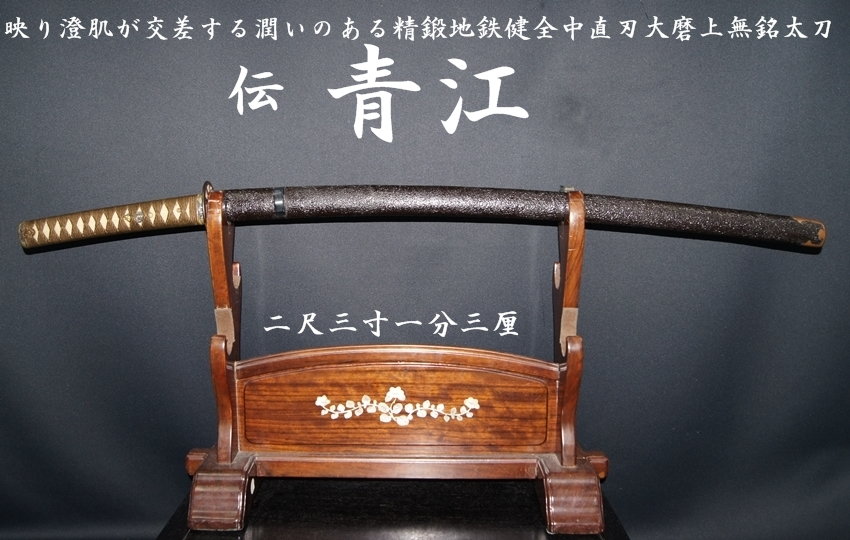 映り澄肌が交差する潤いのある精鍛地鉄健全中直刃大磨上無銘太刀
伝 青江
二尺三寸一分三厘